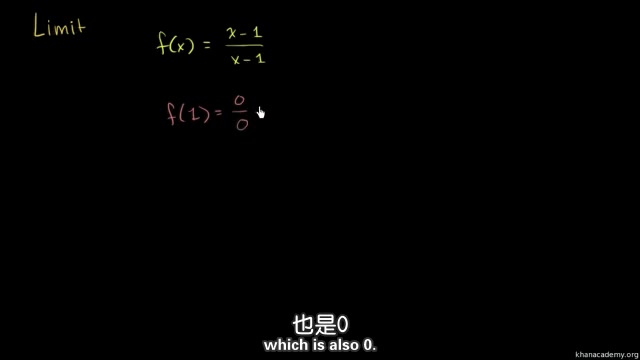 Limit
f(x) = x-1 / x-1
f(1) = 0 / 0
也是0
which is also 0.
khanacademy.org